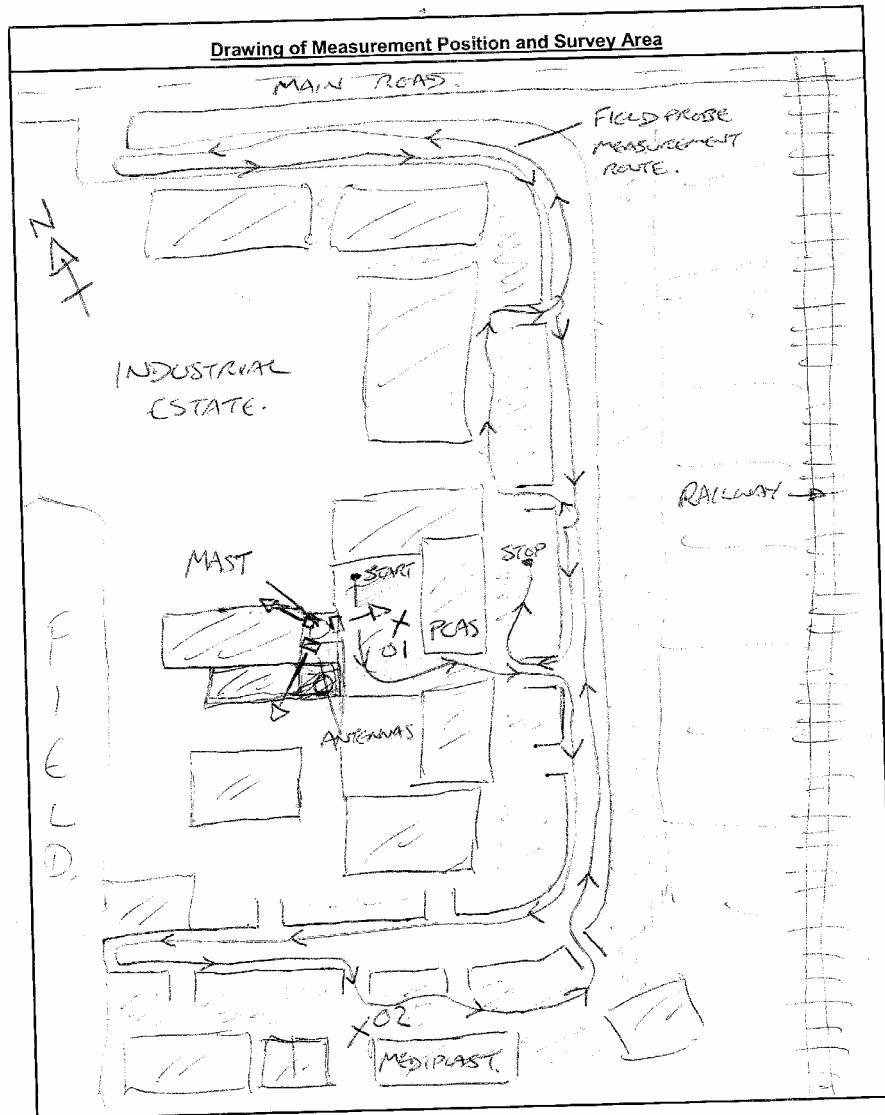 Drawing of Measurement Position and Survey Area
MAIN ROAD.
FIELD PROBE
MEASUREMENT
ROUTE.
N
INDUSTRIAL
ESTATE.
RAILWAY
MAST
START
STOP
X
01
PCAS
ANTENNAS
FIELD.
X02
MEDIPLAST.